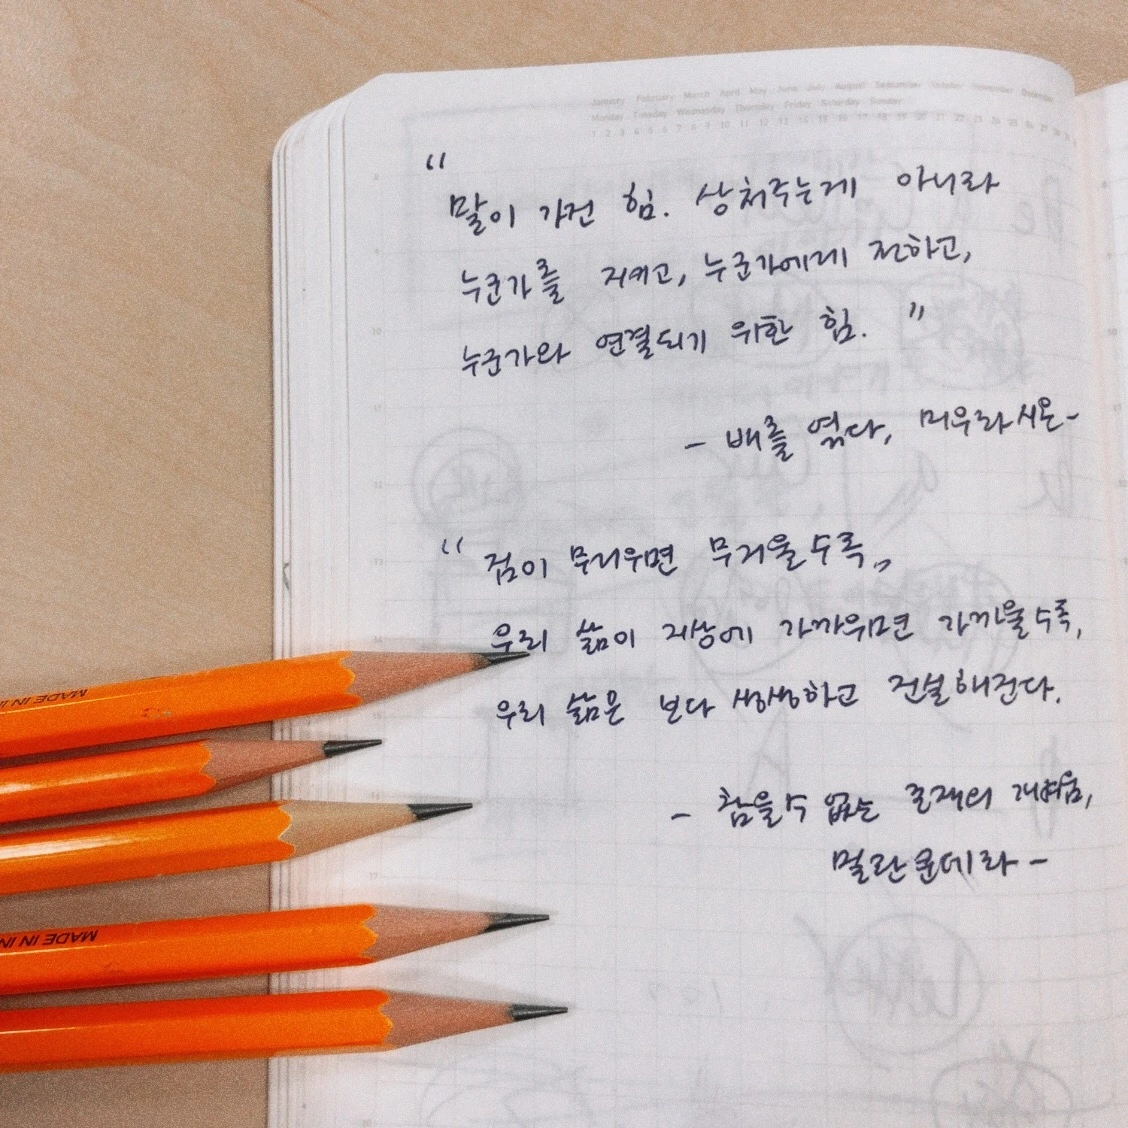 January February March April May June July August September October November December
Monday Tuesday Wednesday Thursday Friday Saturday Sunday
“
말이 가진 힘. 상처주는게 아니라
누군가를 지키고, 누군가에게 전하고,
누군가와 연결되기 위한 힘. ”
- 배를 엮다, 미우라 시온 -
“ 짐이 무거우면 무거울수록,
우리 삶이 지상에 가까우면 가까울수록,
우리 삶은 보다 생생하고 진실해진다.
- 참을 수 없는 존재의 가벼움,
밀란 쿤데라 -
MADE IN IN
MADE IN IN